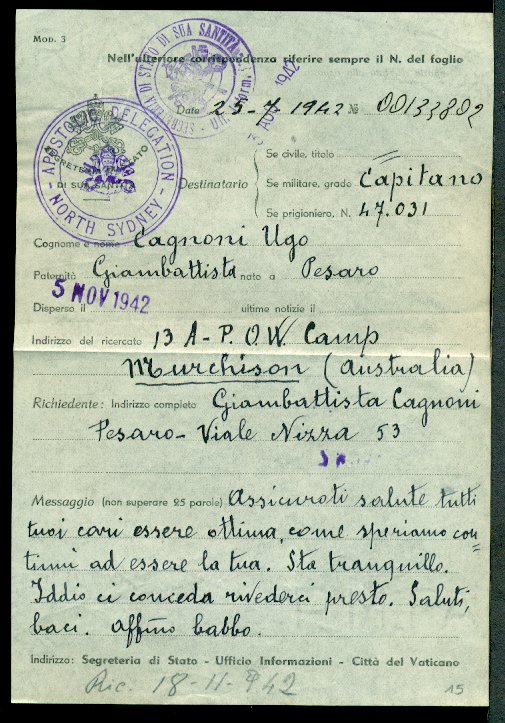 Mod. 3
Nell'ulteriore corrispondenza riferire sempre il N. del foglio
SEGRETERIA DI STATO DI SUA SANTITÀ
1942
Data 25-7 1942 № 00133802
APOSTOLIC DELEGATION
NORTH SYDNEY
SEGRETERIA DI STATO
DI SUA SANTITÀ
Destinatario
Se civile, titolo
Se militare, grado Capitano
Se prigioniero, N. 47.031
Cognome e nome Cagnoni Ugo
Paternità Giambattista nato a Pesaro
5 NOV 1942
Disperso il ultime notizie il
Indirizzo del ricercato 13 A - P.O.W. Camp
Murchison (Australia)
Richiedente: Indirizzo completo Giambattista Cagnoni
Pesaro - Viale Nizza 53
Messaggio (non superare 25 parole) Assicuroti salute tutti
tuoi cari essere ottima, come speriamo con=
tinui ad essere la tua. Sta tranquillo.
Iddio ci conceda rivederci presto. Saluti,
baci. affmo babbo.
Indirizzo: Segreteria di Stato - Ufficio Informazioni - Città del Vaticano
Ric. 18-11-942
15